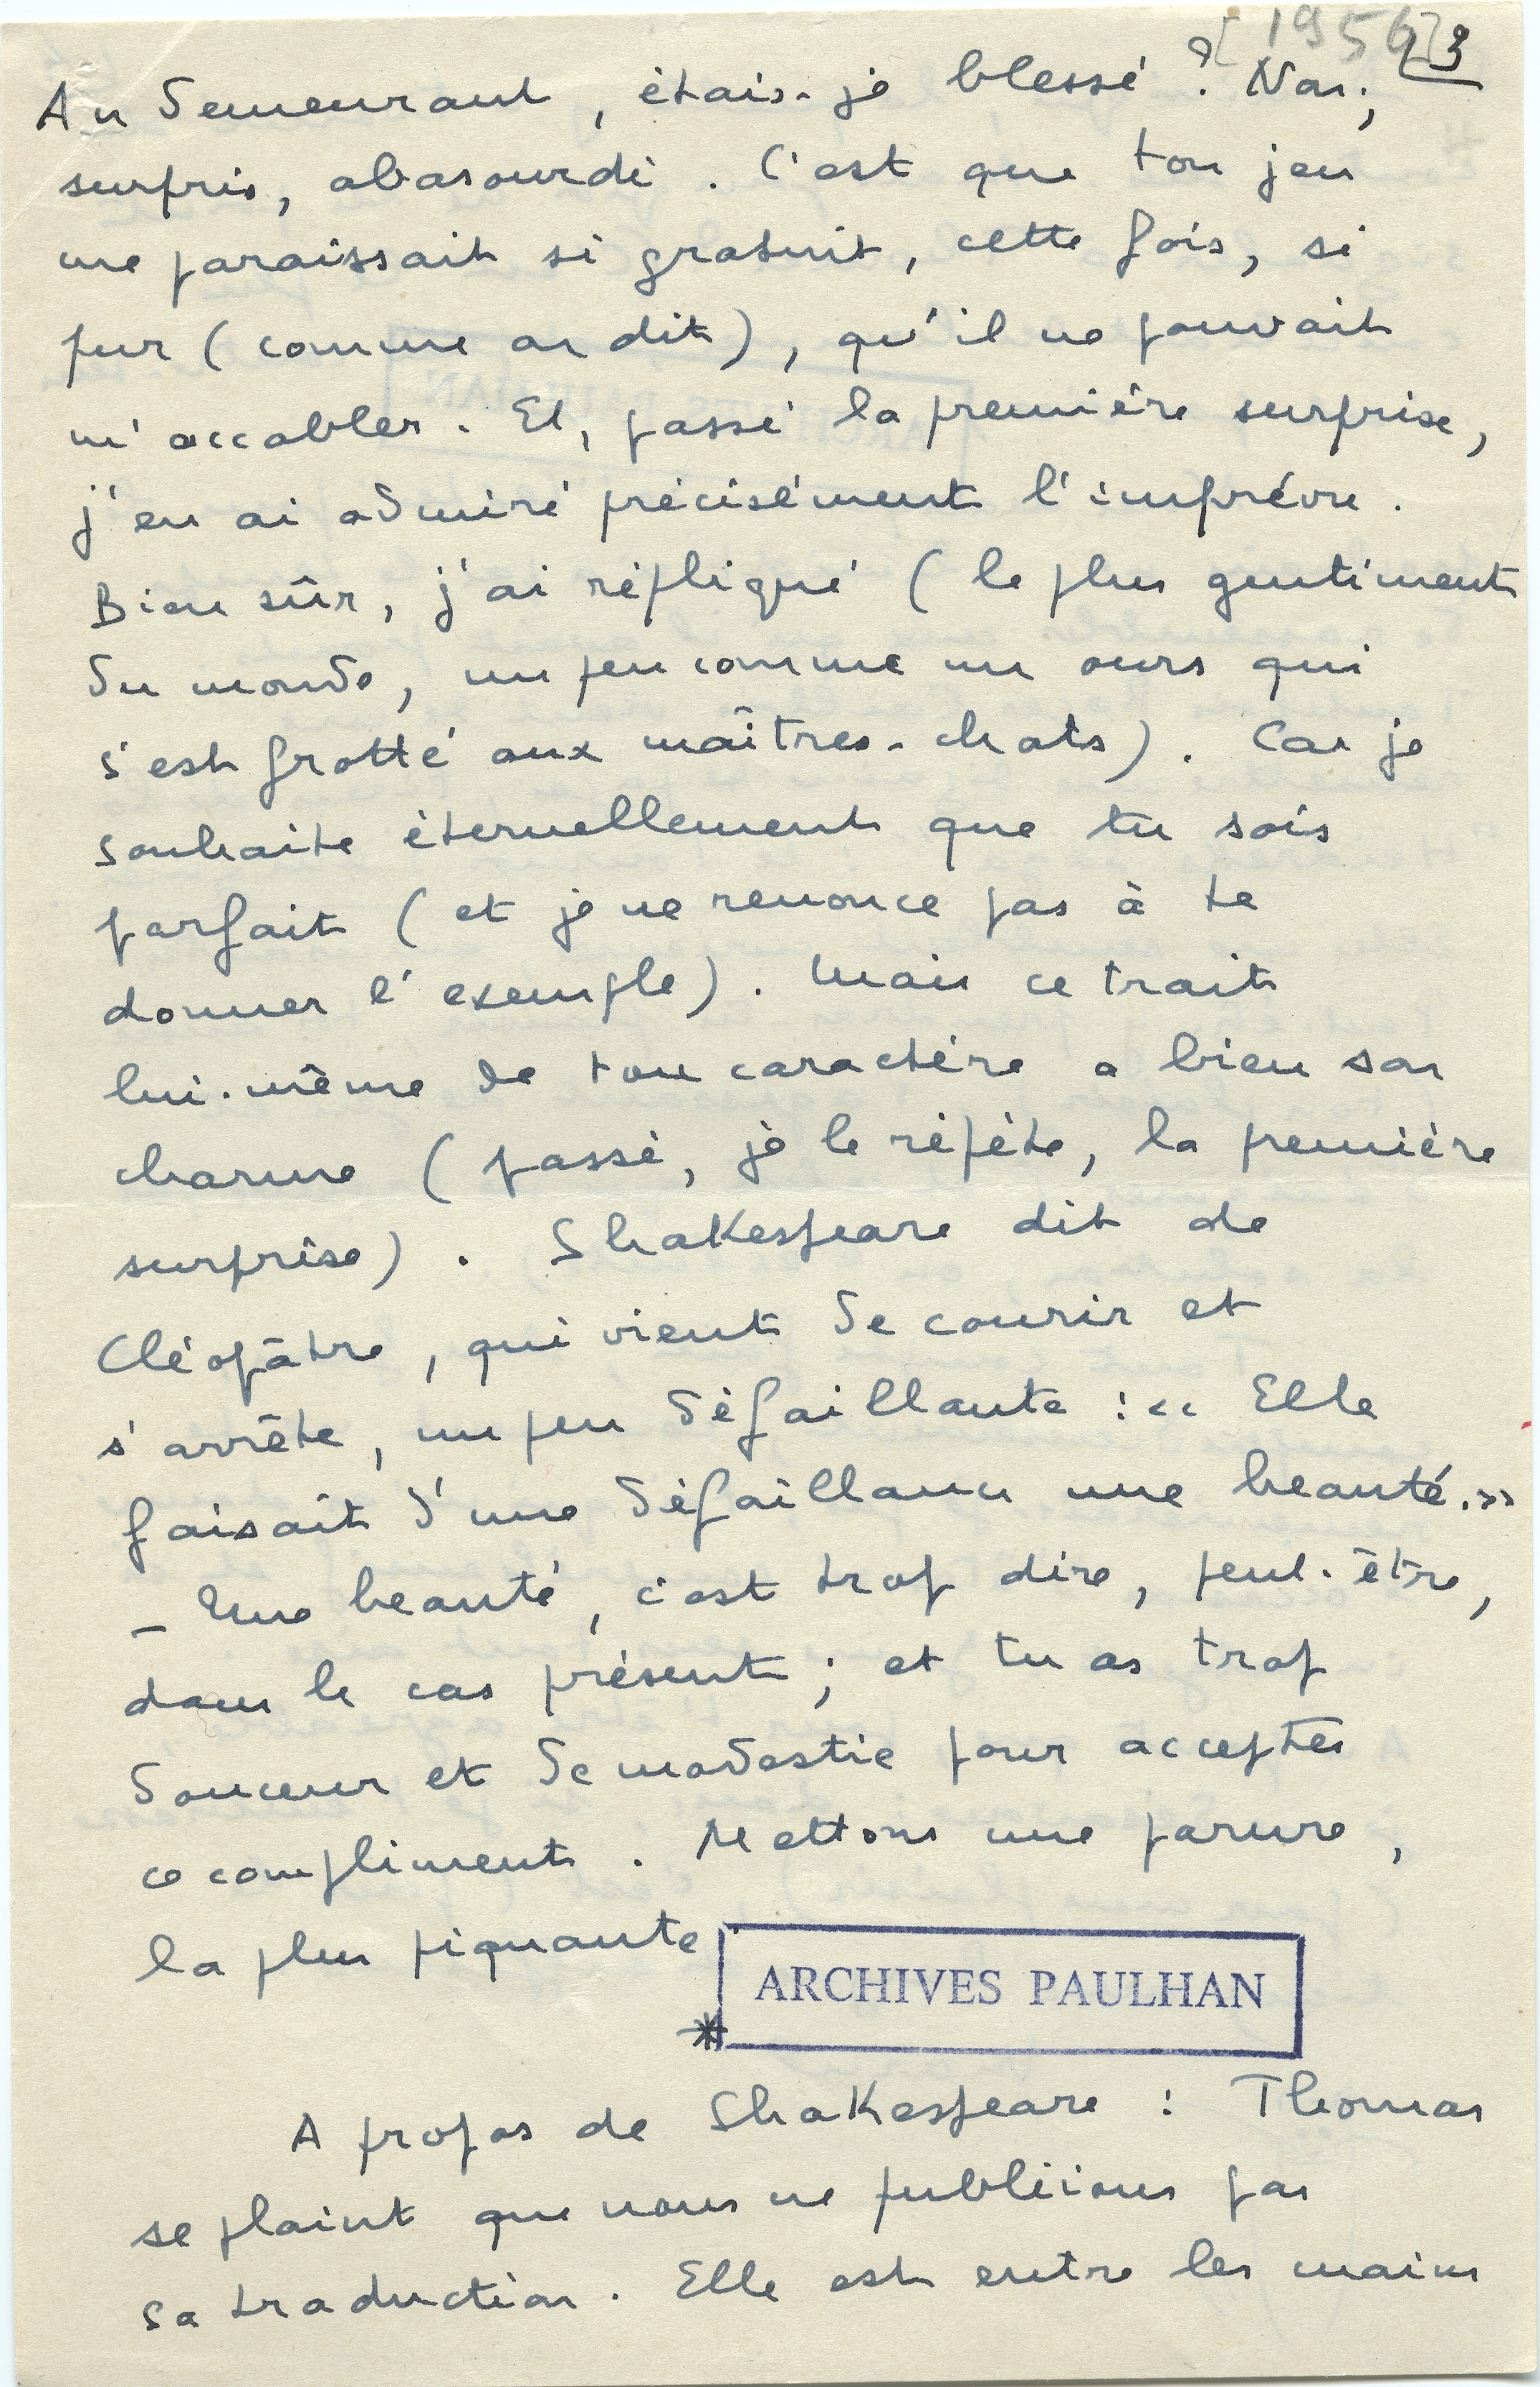 [1956] 3
Au demeurant, étais-je blessé ? Non ;
surpris, abasourdi. C'est que ton jeu
me paraissait si gratuit, cette fois, si
pur (comme on dit), qu'il ne pouvait
m'accabler. Et, passé la première surprise,
j'en ai admiré précisément l'imprévu.
Bien sûr, j'ai répliqué (le plus gentiment
du monde, un peu comme un ours qui
s'est frotté aux maîtres-chats). Car je
souhaite éternellement que tu sois
parfait (et je ne renonce pas à te
donner l'exemple). Mais ce trait
lui-même de ton caractère a bien son
charme (passé, je le répète, la première
surprise). Shakespeare dit de
Cléopâtre, qui vient de courir et
s'arrête, un peu défaillante : « Elle
faisait d'une défaillance une beauté. »
– Une beauté, c'est trop dire, peut-être,
dans le cas présent ; et tu as trop
douceur et de modestie pour accepter
ce compliment. Mettons une parure,
la plus piquante.
ARCHIVES PAULHAN
*
A propos de Shakespeare : Thomas
se plaint que nous ne publiions pas
sa traduction. Elle est entre les mains